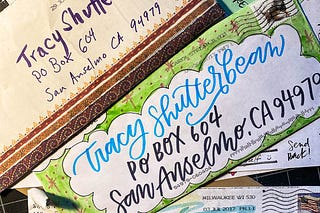 Tracy Shutte
PO Box 604
San Anselmo CA 94979
Tracy Shutterbean
PO BOX 604
San Anselmo, CA 94979
Send
Back!
MILWAUKEE WI 530
03 JUL 2017 PM